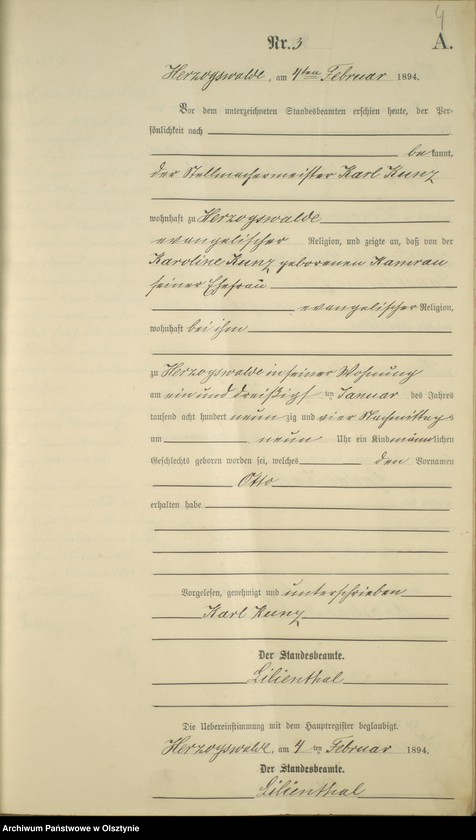 4
Nr. 3
A.
Herzogswalde, am 4ten Februar 1894.
Vor dem unterzeichneten Standesbeamten erschien heute, der Per-
sönlichkeit nach
bekannt,
der Stellmachermeister Karl Kunz
wohnhaft zu Herzogswalde
evangelischer Religion, und zeigte an, daß von der
Karoline Kunz geborenen Kamrau
seiner Ehefrau
evangelischer Religion,
wohnhaft bei ihm
zu Herzogswalde in seiner Wohnung
am ein und dreißigsten Januar des Jahres
tausend acht hundert neunzig und vier Nachmittags
um neun Uhr ein Kind männlichen
Geschlechts geboren worden sei, welches den Vornamen
Otto
erhalten habe
Vorgelesen, genehmigt und unterschrieben
Karl Kunz
Der Standesbeamte.
Lilienthal
Die Uebereinstimmung mit dem Hauptregister beglaubigt.
Herzogswalde, am 4ten Februar 1894.
Der Standesbeamte.
Lilienthal
Archiwum Państwowe w Olsztynie